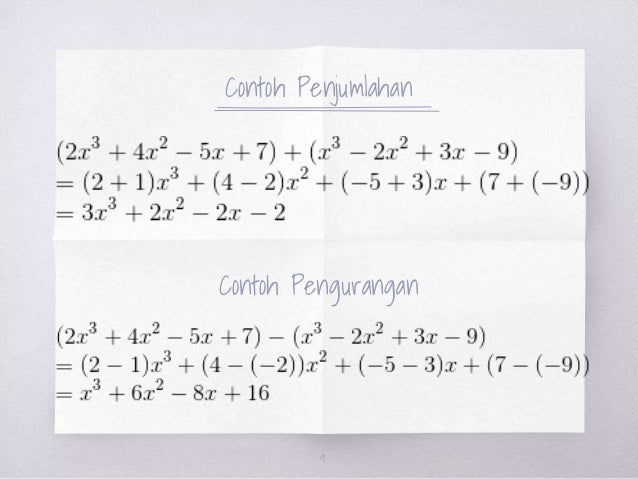 Contoh Penjumlahan
(2x³ + 4x² − 5x + 7) + (x³ − 2x² + 3x − 9)
= (2 + 1)x³ + (4 − 2)x² + (−5 + 3)x + (7 + (−9))
= 3x³ + 2x² − 2x − 2
Contoh Pengurangan
(2x³ + 4x² − 5x + 7) − (x³ − 2x² + 3x − 9)
= (2 − 1)x³ + (4 − (−2))x² + (−5 − 3)x + (7 − (−9))
= x³ + 6x² − 8x + 16